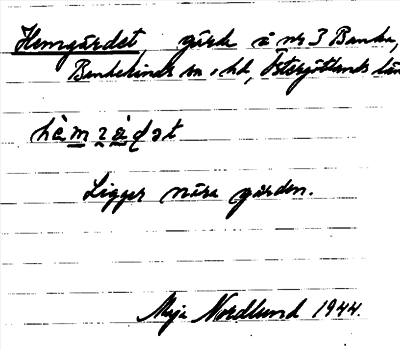 Hemgärdet, gärde å nr 3 Banke,
Bankekinds sn o hd, Östergötlands län
Ligger nära gården.
Maja Nordlund 1944.